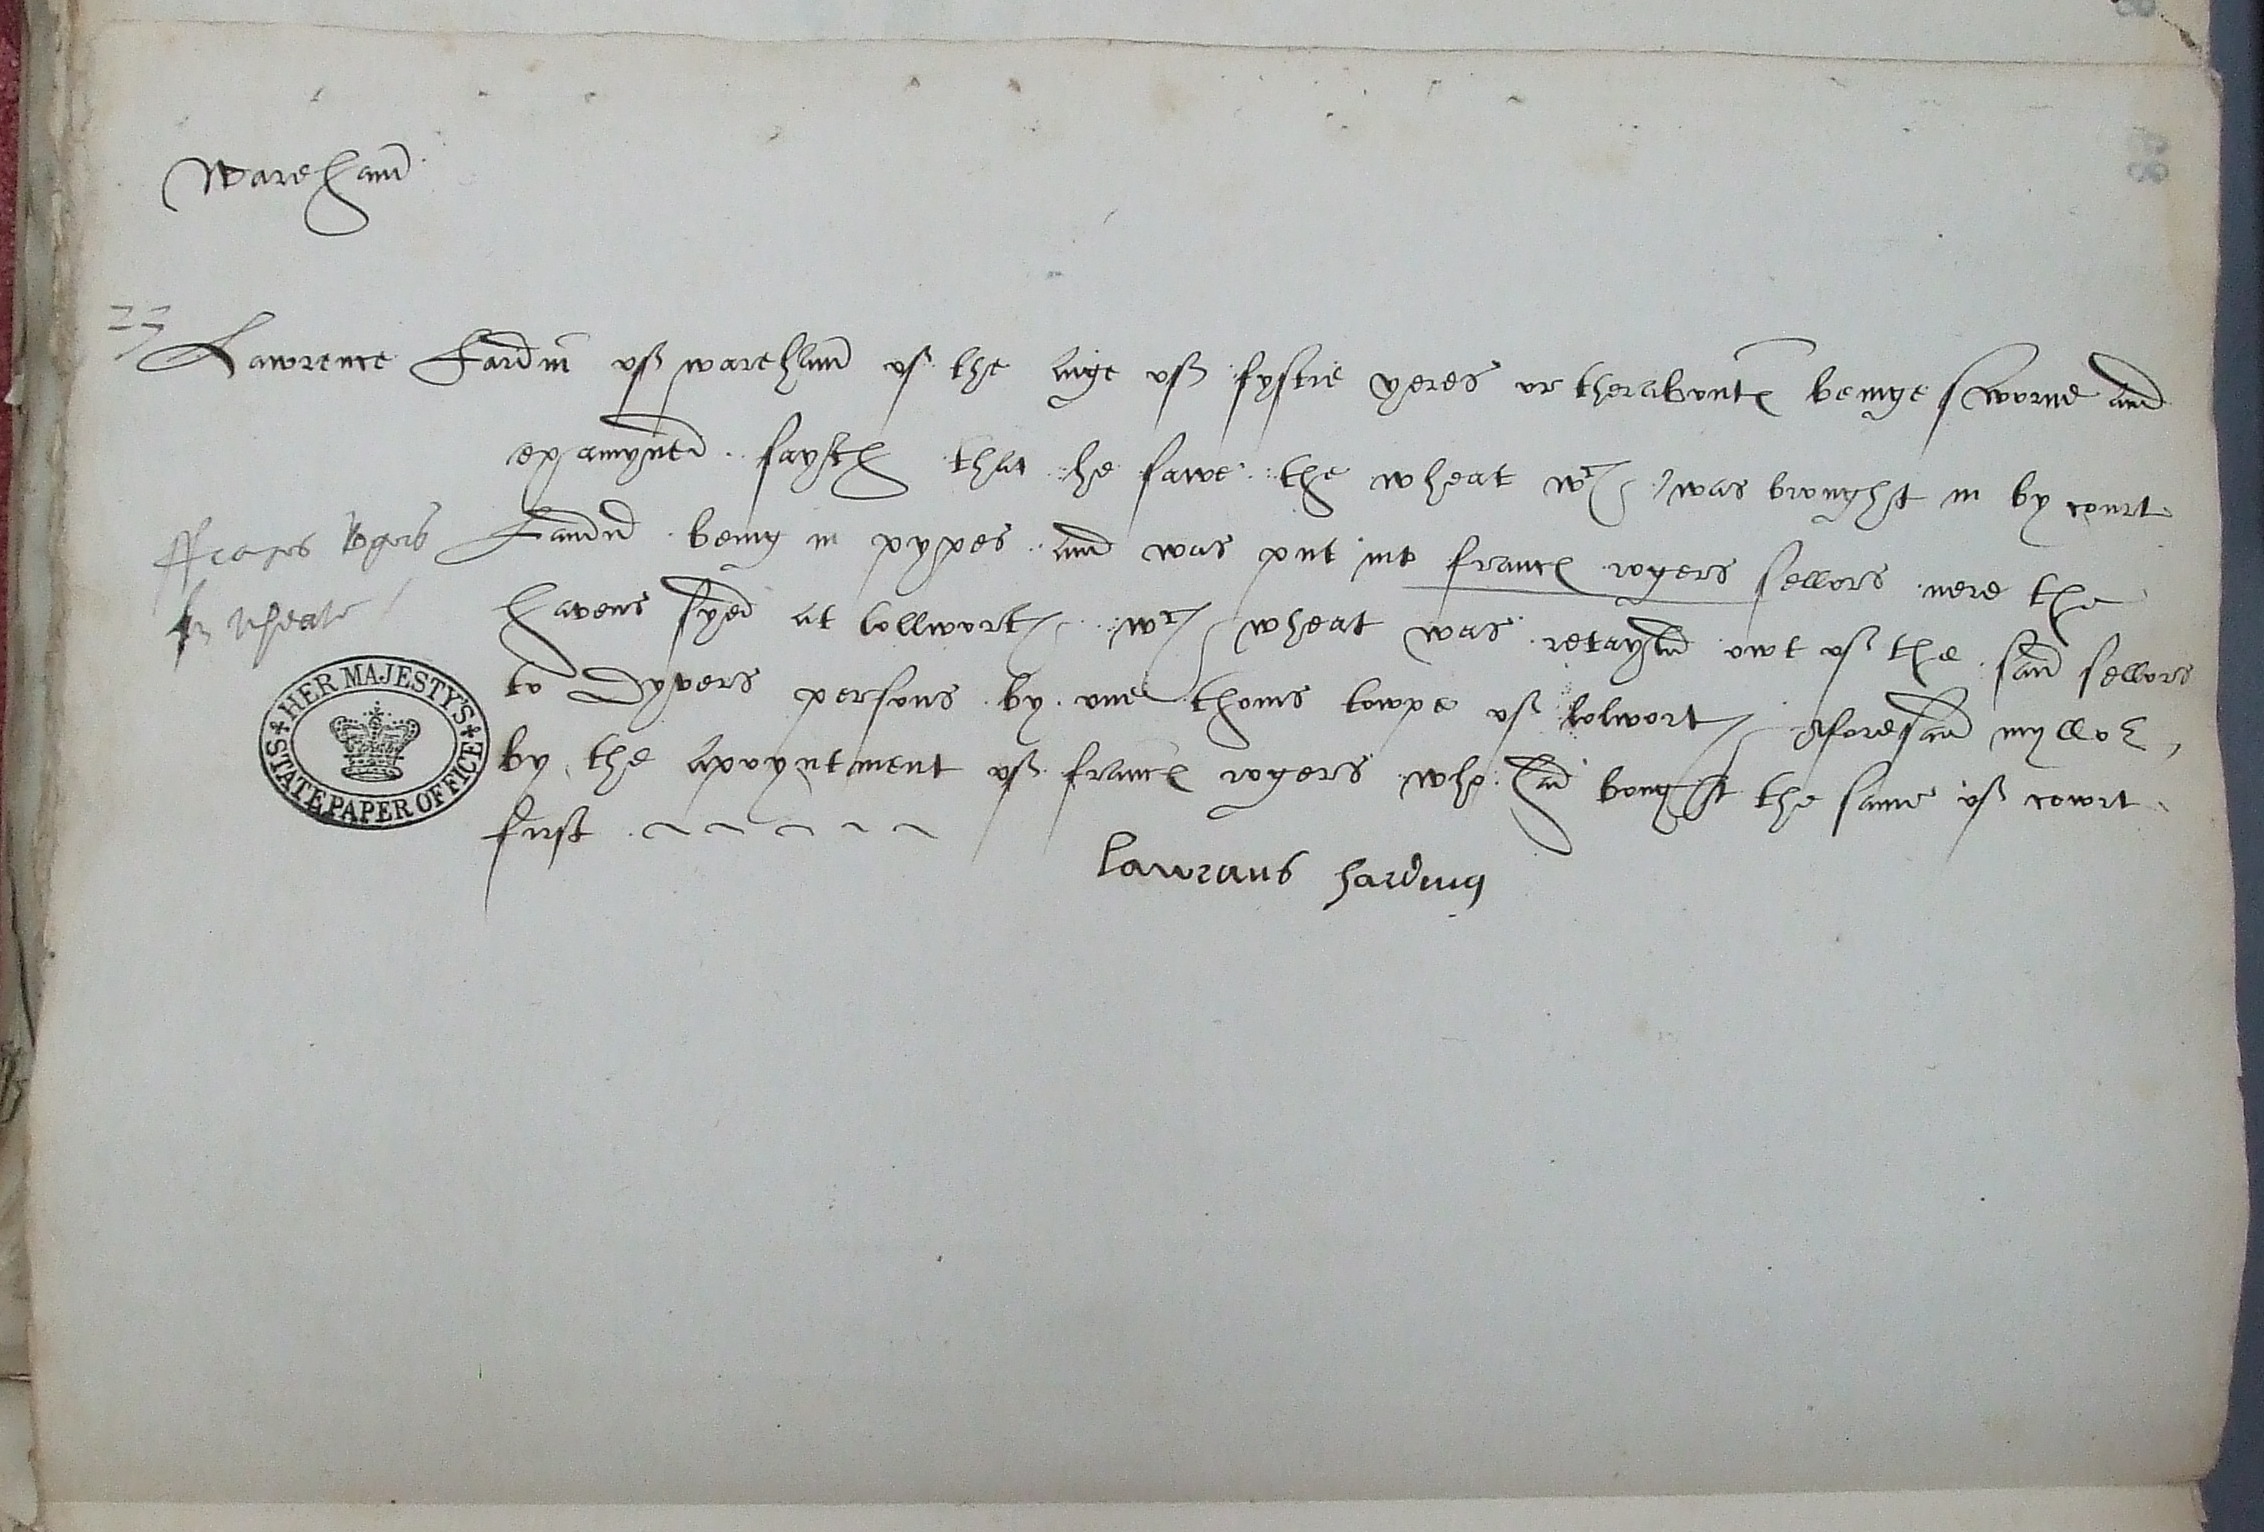 Wareham
23
Lawrence Hardin of wareham of the aige of fyftie yeres or therabouts beinge sworne and
examyned sayeth that he sawe the wheat wch was brought in by court
ffrances Rogers
in wheate
being in pypes and was put into francs rogers sellors nere the
havens syed at lollworth wch wheat was retayled owt of the said sellors
to dyvers persons by one thoms towpe of lolworth aforesaid myller
by the apoyntment of francs rogers who had bought the same of cowrt
first
lawrans harding
HER MAJESTY'S
STATE PAPER OFFICE